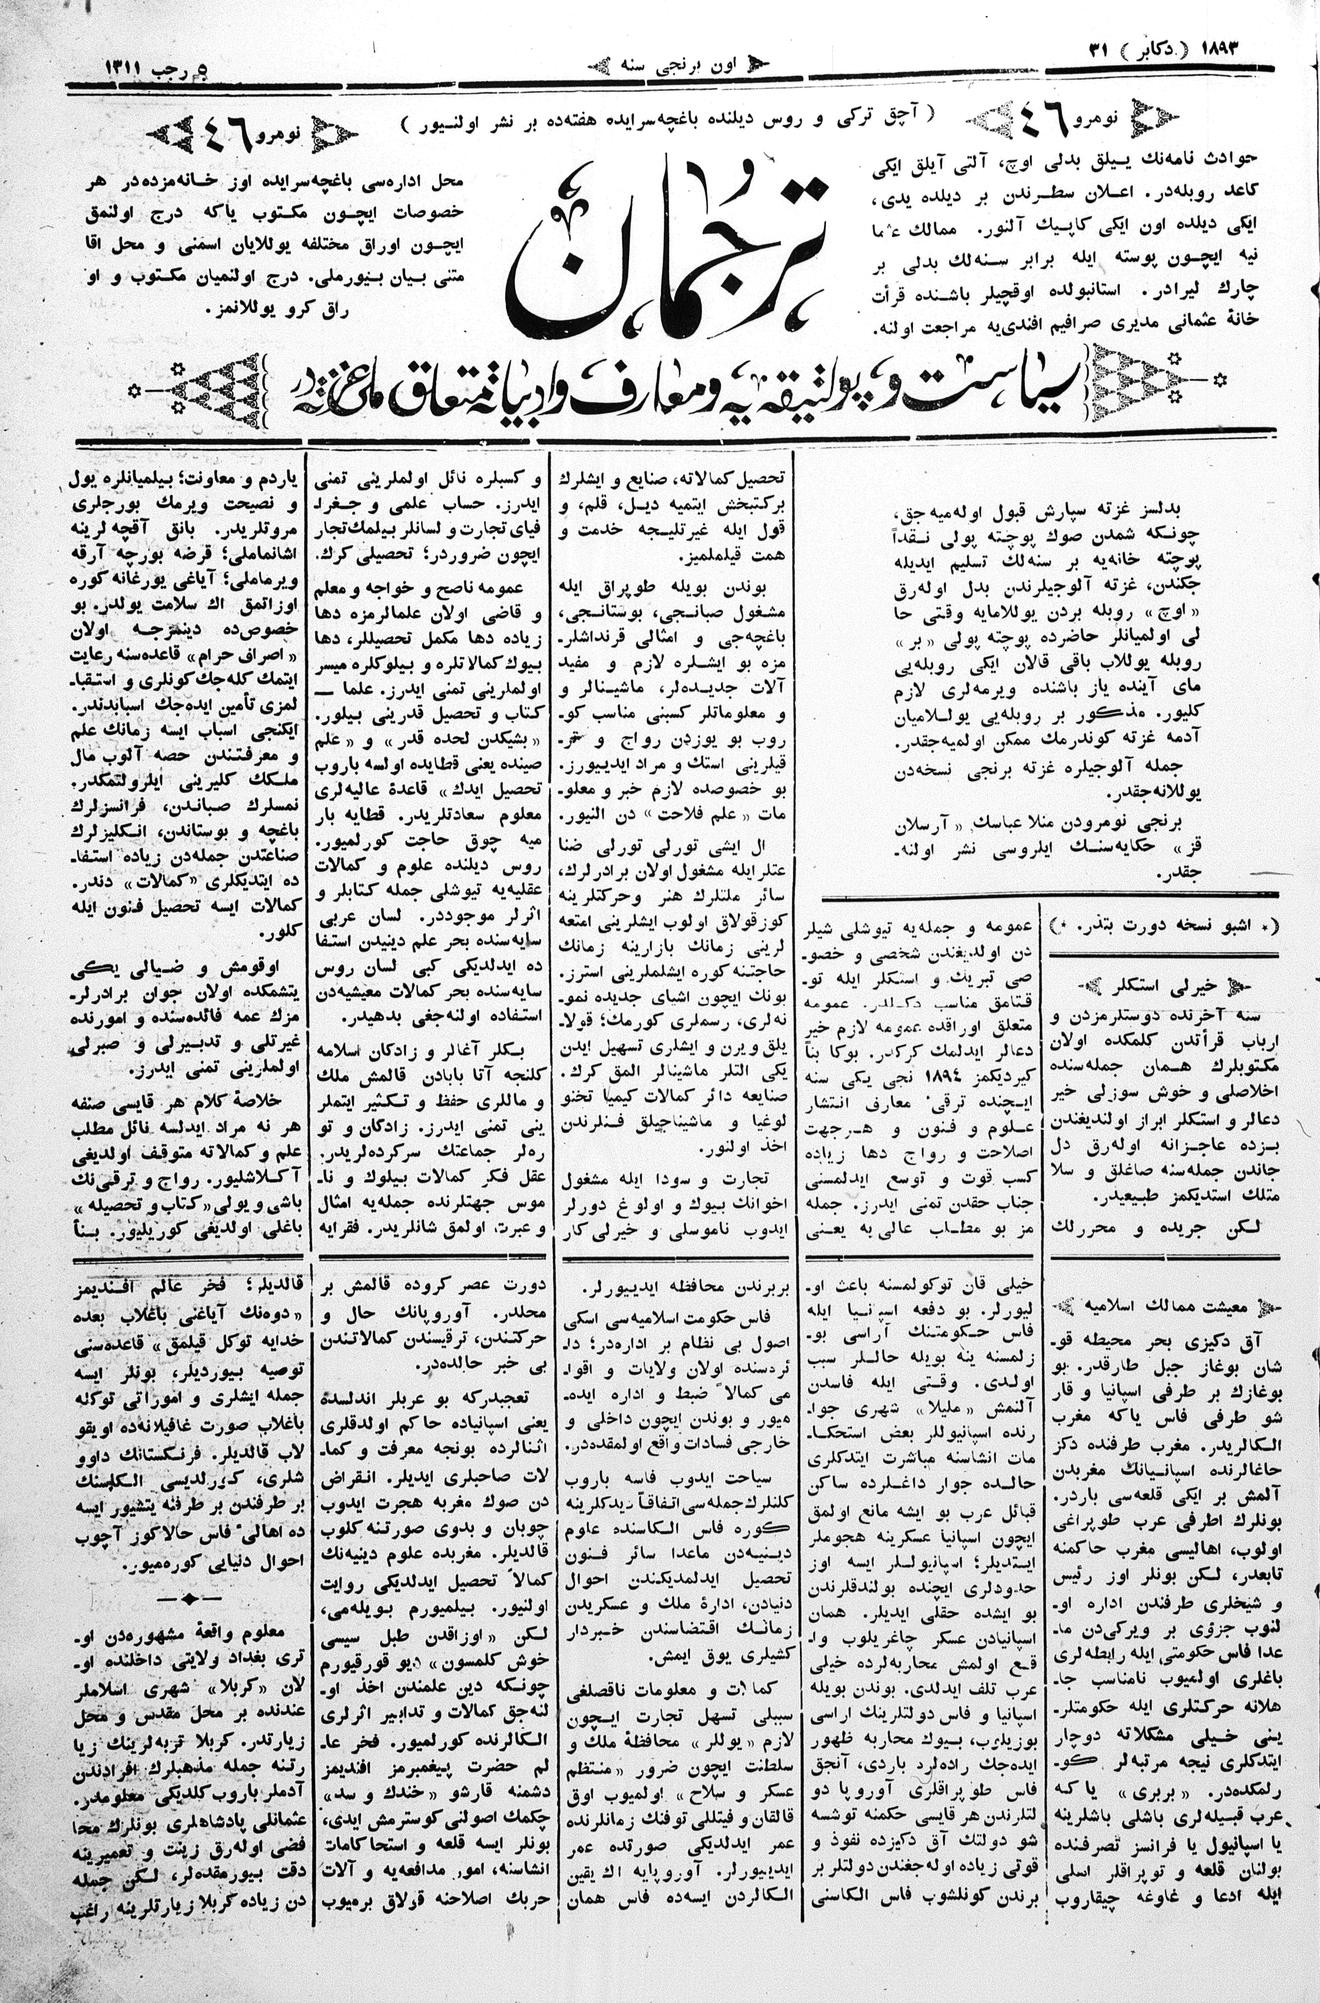 ١٨٩٣ ( دكابر ) ٣١
اون برنجى سنه
٥ رجب ١٣١١
نومرو ٤٦
( آچق تركى و روس ديلنده باغچه‌سرايده هفته‌ده بر نشر اولنيور )
نومرو ٤٦
حوادث نامه‌نك ييلق بدلى اوچ، آلتى آيلق ايكى
كاعد روبله‌در. اعلان سطرندن بر ديلده يدى،
ايكى ديلده اون ايكى كاپيك آلنور. ممالك عثما
نيه ايچون پوسته ايله برابر سنه‌لك بدلى بر
چارك ليرادر. استانبولده اوقچيلر باشنده قرأت
خانهٔ عثمانى مديرى صرافيم افندى‌يه مراجعت اولنه.
ترجمان
محل اداره‌سى باغچه‌سرايده اوز خانه‌مزده‌در هر
خصوصات ايچون مكتوب ياكه درج اولنمق
ايچون اوراق مختلفه يوللايان اسمنى و محل اقا
متنى بيان بيورملى. درج اولنميان مكتوب و او
راق كرو يوللانمز.
سياست و پولتيقه‌يه و معارف و ادبياته متعلق ملى غزته‌در
بدلسز غزته سپارش قبول اوله‌ميه جق،
چونكه شمدن صوك پوچته پولى نقداً
پوچته خانه‌يه بر سنه‌لك تسليم ايديله
جكندن، غزته آلوجيلرندن بدل اوله‌رق
«اوچ» روبله بردن يوللامايه وقتى حا
لى اولميانلر حاضرده پوچته پولى «بر»
روبله يوللاب باقى قالان ايكى روبله‌يى
ماى آينده ياز باشنده ويرمه‌لرى لازم
كليور. مذكور بر روبله‌يى يوللاميان
آدمه غزته كوندرمك ممكن اولميه‌جقدر.
جمله آلوجيلره غزته برنجى نسخه‌دن
يوللانه‌جقدر.
برنجى نومرودن منلا عباسك «آرسلان
قز» حكايه‌سنك ايلروسى نشر اولنه‌ـ
جقدر.
(٭ اشبو نسخه دورت بتدر. ٭)
خيرلى استكلر
سنه آخرنده دوستلرمزدن و
ارباب قرأتدن كلمكده اولان
مكتوبلرك همان جمله‌سنده
اخلاصلى و خوش سوزلى خير
دعالر و استكلر ابراز اولنديغندن
بزده عاجزانه اوله‌رق دل
جاندن جمله‌سنه صاغلق و سلا
متلك استديكمز طبيعيدر.
لكن جريده و محررلك
عمومه و جمله‌يه تيوشلى شيلر
دن اولديغندن شخصى و خصو‌ـ
صى تبريك و استكلر ايله تو‌ـ
قتامق مناسب دكلدر. عمومه
متعلق اوراقده عمومه لازم خير
دعالر ايدلمك كركدر. بوكا بناً
كيرديكمز ١٨٩٤ نجى يكى سنه
ايچنده ترقىٔ معارف انتشار
علوم و فنون و هرجهت
اصلاحت و رواج دها زياده
كسب قوت و توسع ايدلمسنى
جناب حقدن تمنى ايدرز. جمله
مز بو مطلب عالى به يعنى
تحصيل كمالاته، صنايع و ايشلرك
بركتبخش ايتميه ديل، قلم، و
قول ايله غيرتليجه خدمت و
همت قيلملميز.
بوندن بويله طوپراق ايله
مشغول صبانجى، بوستانجى،
باغچه‌جى و امثالى قرنداشلر‌ـ
مزه بو ايشلره لازم و مفيد
آلات جديده‌لر، ماشينالر و
و معلوماتلر كسبنى مناسب كو‌ـ
روب بو يوزدن رواج و
قيلرينى استك و مراد ايدييورز.
بو خصوصده لازم خبر و معلو‌ـ
مات «علم فلاحت» دن النيور.
ال ايشى تورلى تورلى ضنا
عتلرايله مشغول اولان برادرلرك،
سائر ملتلرك هنر وحركتلرينه
كوزقولاق اولوب ايشلرينى امتعه
لرينى زمانك بازارينه زمانك
حاجتنه كوره ايشلملرينى استرز.
بونك ايچون اشياى جديده نمو‌ـ
نه‌لرى، رسملرى كورمك؛ قولا‌ـ
يلق ويرن و ايشارى تسهيل ايدن
يكى التلر ماشينالر المق كرك.
صنايعه دائر كمالات كيميا تخنو
لوغيا و ماشيناجيلق فنلرندن
اخذ اولنور.
تجارت و سودا ايله مشغول
اخوانك بيوك و اولوغ دورلر
ايدوب ناموسلى و خيرلى كار
و كسبلره نائل اولملرينى تمنى
ايدرز. حساب علمى و جغرا‌ـ
فياى تجارت و لسانلر بيلمك تجار
ايچون ضروردر؛ تحصيلى كرك.
عمومه ناصح و خواجه و معلم
و قاضى اولان علمالرمزه دها
زياده دها مكمل تحصيللر، دها
بيوك كمالاتلره و بيلوكلره ميسر
اولملرينى تمنى ايدرز. علما —
كتاب و تحصيل قدرينى بيلور.
«بشيكدن لحده قدر» و «علم
صينده يعنى قطايده اولسه باروب
تحصيل ايدك» قاعدهٔ عاليه‌لرى
معلوم سعادتلريدر. قطايه بار
ميه چوق حاجت كورلميور.
روس ديلنده علوم و كمالات
عقليه‌يه تيوشلى جمله كتابلر و
اثرلر موجوددر. لسان عربى
سايه‌سنده بحر علم دينيدن استفا
ده ايدلديكى كبى لسان روس
سايه‌سنده بحر كمالات معيشيه‌دن
استفاده اولنه‌جغى بدهيدر.
بكلر آغالر و زادكان اسلامه
كلنجه آتا بابادن قالمش ملك
و ماللرى حفظ و تكثير ايتملر
ينى تمنى ايدرز. زادكان و تو
ره‌لر جماعتك سركرده‌لريدر.
عقل فكر كمالات بيلوك و نا‌ـ
موس جهتلرنده جمله‌يه امثال
و عبرت اولمق شانلريدر. فقرايه
ياردم و معاونت؛ بيلميانلره يول
و نصيحت ويرمك بورجلرى
مروتلريدر. بانق آقچه لرينه
اشانماملى؛ قرضه بورچه آرقه
ويرماملى؛ آياغى يورغانه كوره
اوزاتمق اك سلامت يولدر. بو
خصوص‌ده دينمزجه اولان
«اصراف حرام» قاعده‌سنه رعايت
ايتمك كله‌جك كونلرى و استقبا‌ـ
لمزى تأمين ايده‌جك اسبابدندر.
ايكنجى اسباب ايسه زمانك علم
و معرفتندن حصه آلوب مال
ملكك كليرينى ايلرولتمكدر.
نمسلرك صباندن، فرانسزلرك
باغچه و بوستاندن، انكليزلرك
صناعتدن جمله‌دن زياده استفا‌ـ
ده ايتديكلرى «كمالات» دندر.
كمالات ايسه تحصيل فنون ايله
كلور.
اوقومش و ضيالى يكى
يتشمكده اولان جوان برادرلر‌ـ
مزك عمه فائده‌سنده و امورنده
غيرتلى و تدبيرلى و صبرلى
اولملرينى تمنى ايدرز.
خلاصهٔ كلام هر قايسى صنفه
هر نه مراد ايدلسه نائل مطلب
علم و كمالاته متوقف اولديغى
آكلاشليور. رواج و ترقى‌نك
باشى و يولى «كتاب و تحصيله»
باغلى اولديغى كوريليور. بناً
معيشت ممالك اسلاميه
آق دكيزى بحر محيطه قو‌ـ
شان بوغاز جبل طارقدر. بو
بوغازك بر طرفى اسپانيا و قار
شو طرفى فاس ياكه مغرب
الكالريدر. مغرب طرفنده دكز
حاغالرنده اسپانيانك مغربدن
آلمش بر ايكى قلعه‌سى باردر.
بونلرك اطرفى عرب طوپراغى
اولوب، اهاليسى مغرب حاكمنه
تابعدر، لكن بونلر اوز رئيس
و شيخلرى طرفندن اداره او‌ـ
لنوب جزؤى بر ويركى‌دن ما‌ـ
عدا فاس حكومتى ايله رابطه‌لرى
باغلرى اولميوب نامناسب جا‌ـ
هلانه حركتلرى ايله حكومتلر‌ـ
ينى خيلى مشكلاته دوچار
ايتدكلرى نيجه مرتبه‌لر كو‌ـ
رلمكده‌در. «بربرى» ياكه
عرب قبيله‌لرى باشلى باشلرينه
يا اسپانيول يا فرانسز تصرفنده
بولنان قلعه و توپراقلر اسلى
ايله ادعا و غاوغه چيقاروب
خيلى قان توكولمسنه باعث او‌ـ
ليورلر. بو دفعه اسپنيا ايله
فاس حكومتنك آراسى بو‌ـ
زلمسنه ينه بويله حاللر سبب
اولدى. وقتى ايله فاسدن
آلنمش «مليلا» شهرى جوا‌ـ
رنده اسپانيوللر بعض استحكا‌ـ
مات انشاسنه مباشرت ايتدكلرى
حالده جوار داغلرده ساكن
قبائل عرب بو ايشه مانع اولمق
ايچون اسپانيا عسكرينه هجوملر
ايتديلر؛ اسپانيوللر ايسه اوز
حدودلرى ايچنده بولندقلرندن
بو ايشده حقلى ايديلر. همان
اسپانيادن عسكر چاغريلوب وا‌ـ
قع اولمش محاربه‌لرده خيلى
عرب تلف ايدلدى. بوندن بويله
اسپانيا و فاس دولتلرينك اراسى
بوزيلوب، بيوك محاربه ظهور
ايده‌جك راده‌لرد باردى، آنجق
فاس طوپراقلرى آوروپا دو
لتلرندن هر قايسى حكمنه توشسه
شو دولتك آق دكيزده نفوذ و
قوتى زياده اوله‌جغندن دولتلر بر
برندن كونلشوب فاس الكاسنى
بربرندن محافظه ايدييورلر.
فاس حكومت اسلاميه‌سى اسكى
اصول بى نظام بر اداره‌در؛ دا‌ـ
ئره‌سنده اولان ولايات و اقوا‌ـ
مى كمالاً ضبط و اداره ايده‌ـ
ميور و بوندن ايچون داخلى و
خارجى فسادات واقع اولمقده‌در.
سياحت ايدوب فاسه باروب
كلنلرك جمله‌سى اتفاقاً ديدكلرينه
كوره فاس الكاسنده علوم
دينيه‌دن ماعدا سائر فنون
تحصيل ايدلمديكندن احوال
دنيادن، ادارهٔ ملك و عسكريدن
زمانك اقتضاسندن خبردار
كشيلرى يوق ايمش.
كمالات و معلومات ناقصلغى
سببلى تسهل تجارت ايچون
لازم «يوللر» محافظهٔ ملك و
سلطنت ايچون ضرور «منتظم
عسكر و سلاح» اولميوب اوق
قالقان و فيتللى توفنك زمانلرنده
عمر ايدلديكى صورتده عمر
ايدييورلر. آوروپايه اك يقين
الكالردن ايسه‌ده فاس همان
دورت عصر كروده قالمش بر
محلدر. آوروپانك حال و
حركتندن، ترقيسندن كمالاتندن
بى خبر حالده‌در.
تعجبدركه بو عربلر اندلسدهٔ
يعنى اسپانياده حاكم اولدقلرى
اثنالرده بونجه معرفت و كما‌ـ
لات صاحبلرى ايديلر. انقراض
دن صوك مغربه هجرت ايدوب
چوبان و بدوى صورتنه كلوب
قالديلر. مغربده علوم دينيه‌نك
كمالاً تحصيل ايدلديكى روايت
اولنيور. بيلميورم بويله‌مى،
لكن «اوزاقدن طبل سيسى
خوش كلمسون» ديو قورقيورم
چونكه دين علمندن اخذ او‌ـ
لنه‌جق كمالات و تدابير اثرلرى
الكالرنده كورلميور. فخر عا‌ـ
لم حضرت پيغمبرمز افنديمز
دشمنه قارشو «خندك و سد»
چكمك اصولنى كوسترمش ايدى،
بونلر ايسه قلعه و استحاكامات
انشاسنه، امور مدافعه‌يه و آلات
حربك اصلاحنه قولاق برميوب
قالديلر؛ فخر عالم افنديمز
«دوه‌نك آياغنى باغلاب بعده
خدايه توكل قيلمق» قاعده‌سنى
توصيه بيورديلر، بونلر ايسه
جمله ايشلرى و اموراتى توكله
باغلاب صورت غافيلانه‌ده اويقو
لاب قالديلر. فرنكستانك داوو
شلرى، كورلديسى الكاسنك
بر طرفندن بر طرفنه يتشيور ايسه
ده اهالىٔ فاس حالا كوز آچوب
احوال دنيايى كوره‌ميور.
معلوم واقعهٔ مشهوره‌دن او‌ـ
ترى بغداد ولايتى داخلنده او‌ـ
لان «كربلا» شهرى اسلاملر
عندنده بر محل مقدس و محل
زيارتدر. كربلا تربه‌لرينك زيا
رتنه جمله مذهبلرك افرادندن
آدملر باروب كلديكى معلومدر.
عثمانلى پادشاهلرى بونلرك محا
فضى اوله‌رق زينت و تعميرينه
دقت بيورمقده‌لر، لكن جمله
دن زياده كربلا زيارتلرينه راغب